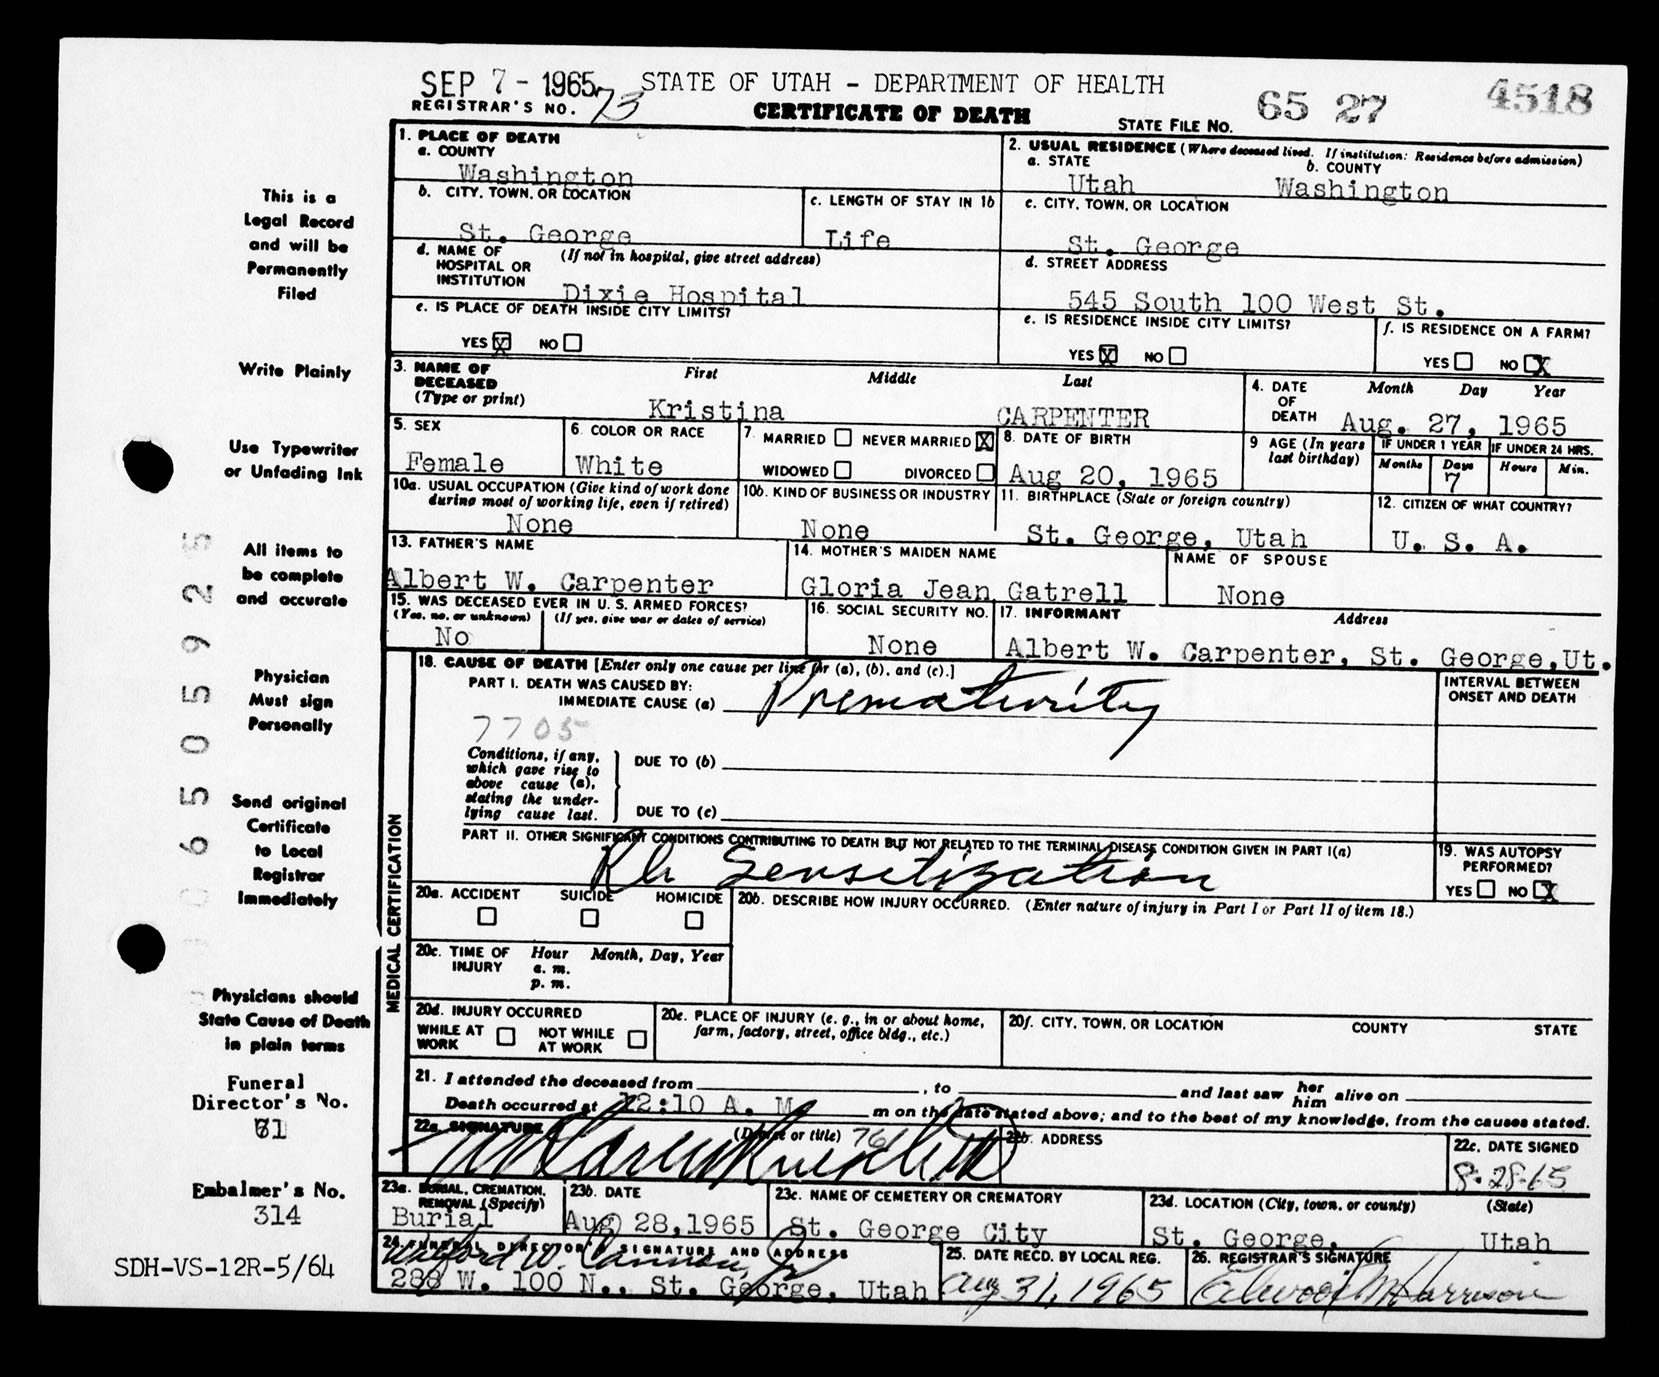 SEP 7 - 1965 STATE OF UTAH - DEPARTMENT OF HEALTH
REGISTRAR'S NO. 73 CERTIFICATE OF DEATH STATE FILE NO. 65 27 4518
This is a Legal Record and will be Permanently Filed
Write Plainly
Use Typewriter or Unfading Ink
All items to be complete and accurate
Physician Must sign Personally
Send original Certificate to Local Registrar Immediately
Physicians should State Cause of Death in plain terms
Funeral Director's No.
Embalmer's No.
314
SDH-VS-12R-5/64
0 6 5 0 5 9 2 5
1. PLACE OF DEATH
a. COUNTY
Washington
2. USUAL RESIDENCE (Where deceased lived. If institution: Residence before admission)
a. STATE b. COUNTY
Utah Washington
b. CITY, TOWN, OR LOCATION
St. George
c. LENGTH OF STAY IN 1b
Life
c. CITY, TOWN, OR LOCATION
St. George
d. NAME OF HOSPITAL OR INSTITUTION (If not in hospital, give street address)
Dixie Hospital
d. STREET ADDRESS
545 South 100 West St.
e. IS PLACE OF DEATH INSIDE CITY LIMITS?
YES X NO
e. IS RESIDENCE INSIDE CITY LIMITS?
YES X NO
f. IS RESIDENCE ON A FARM?
YES NO X
3. NAME OF DECEASED (Type or print) First Middle Last
Kristina CARPENTER
4. DATE OF DEATH Month Day Year
Aug. 27, 1965
5. SEX
Female
6. COLOR OR RACE
White
7. MARRIED NEVER MARRIED X
WIDOWED DIVORCED
8. DATE OF BIRTH
Aug 20, 1965
9 AGE (In years last birthday) IF UNDER 1 YEAR IF UNDER 24 HRS.
Months Days Hours Min.
7
10a. USUAL OCCUPATION (Give kind of work done during most of working life, even if retired)
None
10b. KIND OF BUSINESS OR INDUSTRY
None
11. BIRTHPLACE (State or foreign country)
St. George, Utah
12. CITIZEN OF WHAT COUNTRY?
U. S. A.
13. FATHER'S NAME
Albert W. Carpenter
14. MOTHER'S MAIDEN NAME
Gloria Jean Gatrell
NAME OF SPOUSE
None
15. WAS DECEASED EVER IN U. S. ARMED FORCES?
(Yes, no, or unknown) (If yes, give war or dates of service)
No
16. SOCIAL SECURITY NO.
None
17. INFORMANT Address
Albert W. Carpenter, St. George, Ut.
MEDICAL CERTIFICATION
18. CAUSE OF DEATH [Enter only one cause per line for (a), (b), and (c).]
PART I. DEATH WAS CAUSED BY:
IMMEDIATE CAUSE (a) Prematurity
7705
INTERVAL BETWEEN ONSET AND DEATH
Conditions, if any, which gave rise to above cause (a), stating the underlying cause last.
DUE TO (b)
DUE TO (c)
PART II. OTHER SIGNIFICANT CONDITIONS CONTRIBUTING TO DEATH BUT NOT RELATED TO THE TERMINAL DISEASE CONDITION GIVEN IN PART I(a)
Rh Sensitization
19. WAS AUTOPSY PERFORMED?
YES NO X
20a. ACCIDENT SUICIDE HOMICIDE
20b. DESCRIBE HOW INJURY OCCURRED. (Enter nature of injury in Part I or Part II of item 18.)
20c. TIME OF INJURY Hour Month, Day, Year
a. m.
p. m.
20d. INJURY OCCURRED
WHILE AT WORK NOT WHILE AT WORK
20e. PLACE OF INJURY (e. g., in or about home, farm, factory, street, office bldg., etc.)
20f. CITY, TOWN, OR LOCATION COUNTY STATE
21. I attended the deceased from , to and last saw her him alive on
Death occurred at 12:10 A. M m on the date stated above; and to the best of my knowledge, from the causes stated.
22a. SIGNATURE (Degree or title) 761
22b. ADDRESS
22c. DATE SIGNED
8-28-65
23a. BURIAL, CREMATION, REMOVAL (Specify)
Burial
23b. DATE
Aug 28, 1965
23c. NAME OF CEMETERY OR CREMATORY
St. George City
23d. LOCATION (City, town, or county) (State)
St. George, Utah
24. FUNERAL DIRECTOR'S SIGNATURE AND ADDRESS
288 W. 100 N., St. George, Utah
25. DATE RECD. BY LOCAL REG.
Aug 31, 1965
26. REGISTRAR'S SIGNATURE
Elwood M Harrison